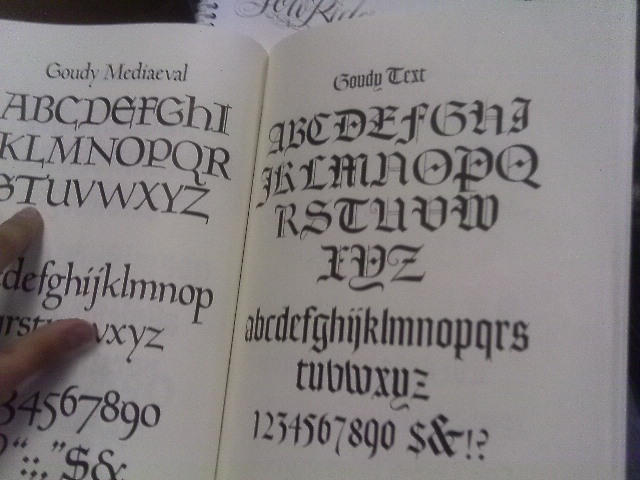 Goudy Mediaeval
ABCDEFGHI
KLMNOPQR
STUVWXYZ
defghijklmnop
vxyz
34567890
:;."$&
Goudy Text
ABCDEFGHI
JKLMNOPQ
RSTUVW
XYZ
abcdefghijklmnopqrs
tuvwxyz
1234567890 $&!?